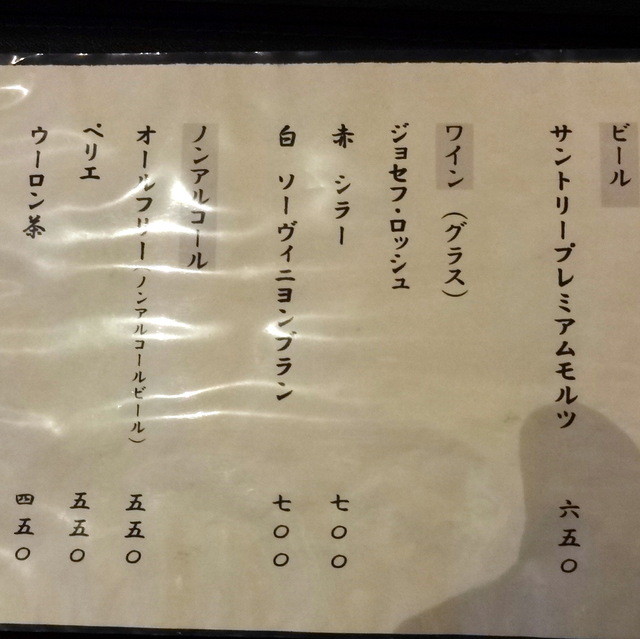 ビール
サントリープレミアムモルツ 六五〇
ワイン（グラス）
ジョセフ・ロッシュ
赤 シラー 七〇〇
白 ソーヴィニヨンブラン 七〇〇
ノンアルコール
オールフリー（ノンアルコールビール） 五五〇
ペリエ 五五〇
ウーロン茶 四五〇